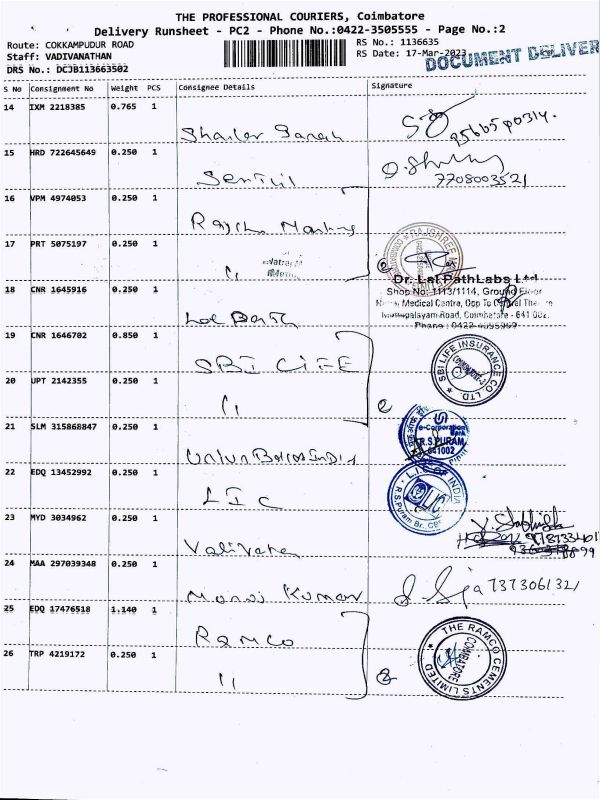 THE PROFESSIONAL COURIERS, Coimbatore
Delivery Runsheet - PC2 - Phone No.:0422-3505555 - Page No.:2
Route: COKKAMPUDUR ROAD
RS No.: 1136635
Staff: VADIVANATHAN
RS Date: 17-Mar-2023
DOCUMENT DELIVER
DRS No.: DCJB113663502
S No Consignment No Weight PCS Consignee Details Signature
14 IXM 2218385 0.765 1
15 HRD 722645649 0.250 1
7708003521
16 VPM 4974053 0.250 1
17 PRT 5075197 0.250 1
"
Dr. Lal PathLabs Ltd
18 CNR 1645916 0.250 1
Shop No: 1113/1114, Ground Floor
Medical Centre, Opp To Central
Road, Coimbatore - 641 002.
Phone : 0422-4395969
19 CNR 1646702 0.850 1
SBI LIFE
SBI LIFE INSURANCE CO LTD.
20 UPT 2142355 0.250 1
"
21 SLM 315868847 0.250 1
e-Corporation
Bank
R.S.PURAM
641002
22 EDQ 13452992 0.250 1
LIC
L.I.C OF INDIA
R.S.Puram Br., CBE
23 MYD 3034962 0.250 1
24 MAA 297039348 0.250 1
Manoj Kumar
7373061321
25 EDQ 17476518 1.140 1
Ramco
26 TRP 4219172 0.250 1
"
THE RAMCO CEMENTS LIMITED
COIMBATORE